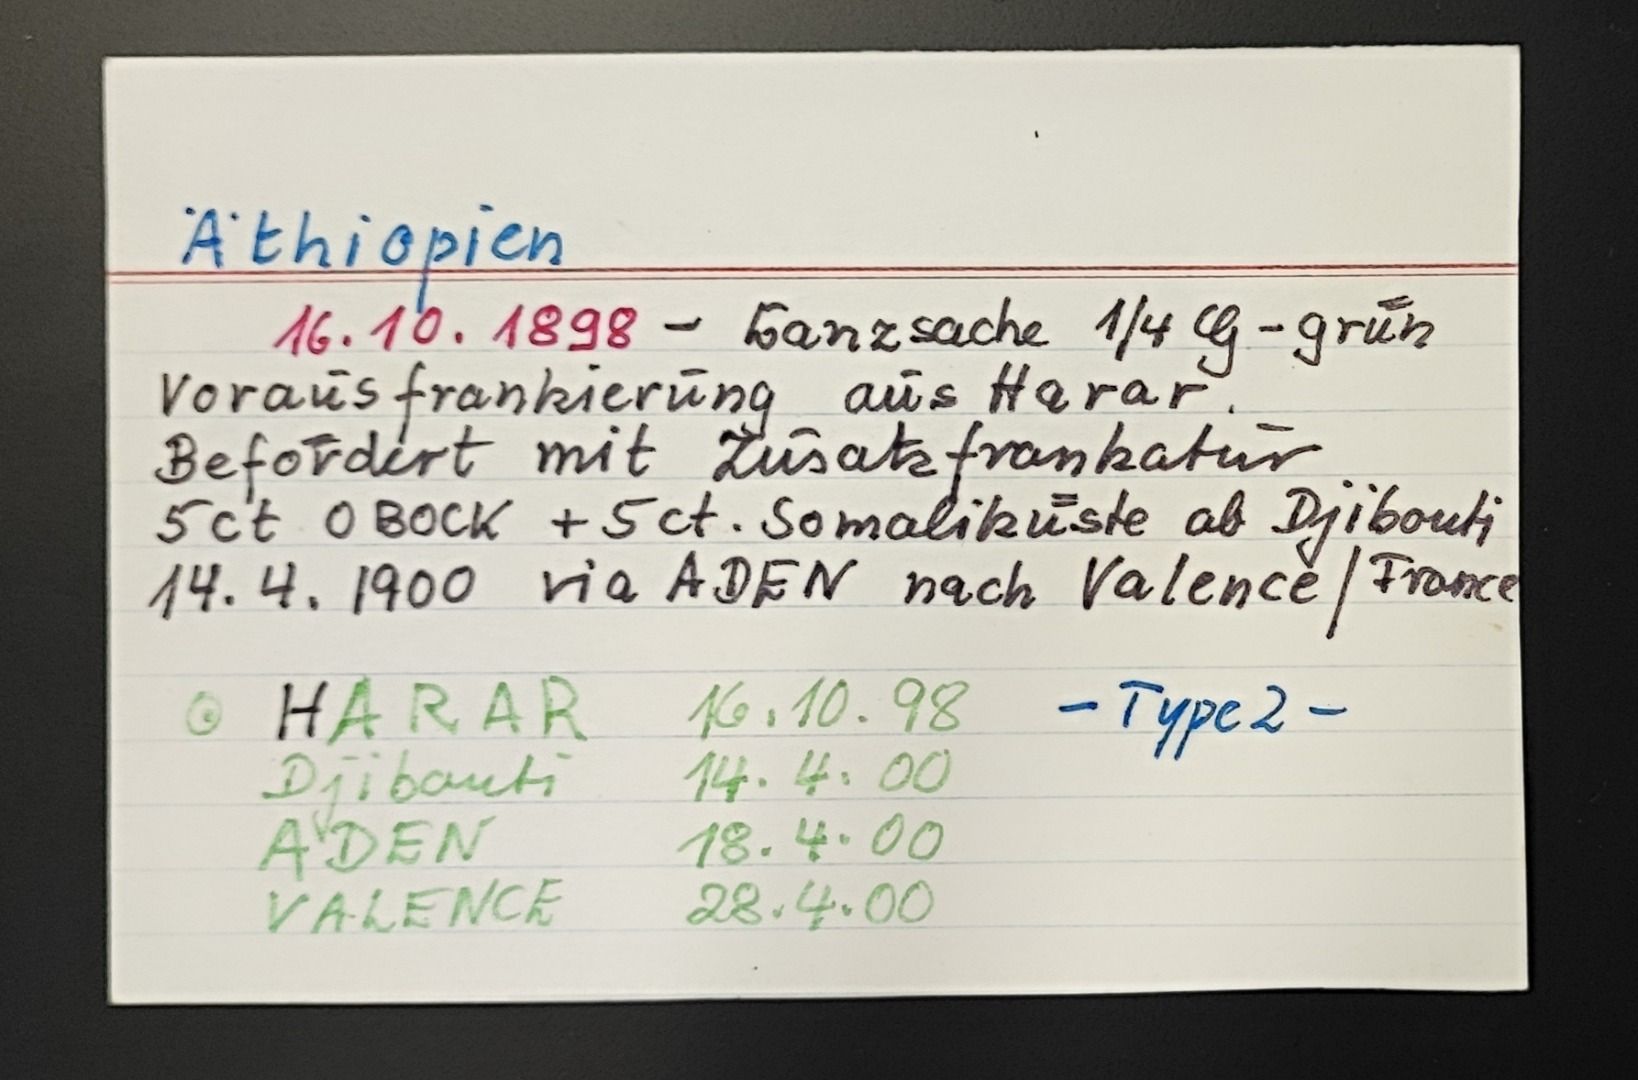 Äthiopien
16.10.1898 - Ganzsache 1/4 G - grün
Vorausfrankierung aus Harar.
Befördert mit Zusatzfrankatur
5ct OBOCK + 5ct. Somaliküste ab Djibouti
14.4.1900 via ADEN nach Valence/France
HARAR 16.10.98 - Type 2 -
Djibouti 14.4.00
ADEN 18.4.00
VALENCE 28.4.00